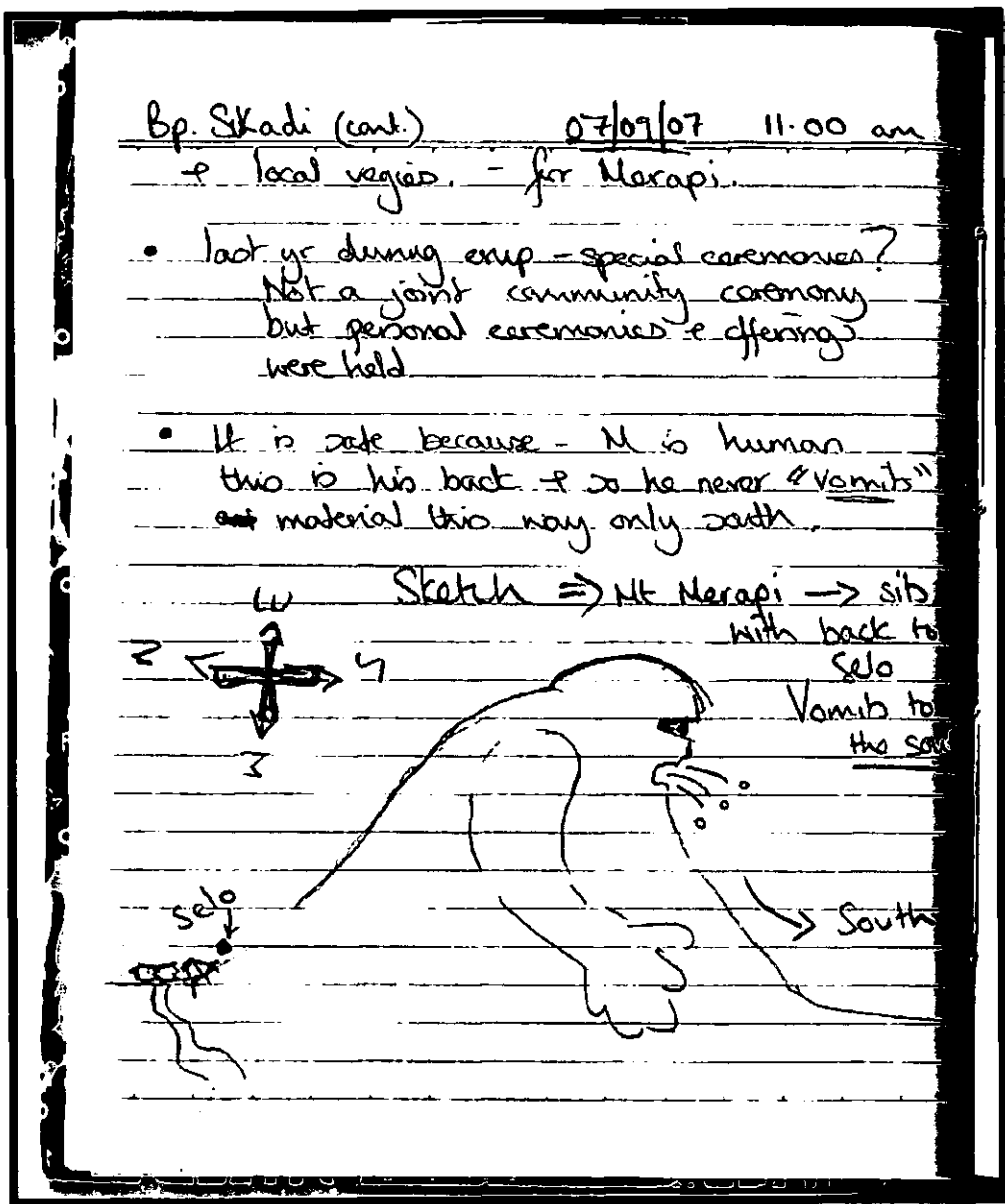 Bp. Sikadi (cont.) 07/09/07 11.00 am
+ local vegies. - for Merapi.
• last yr during erup - special ceremonies?
Not a joint community ceremony
but personal ceremonies + offerings
were held
• It is safe because - M is human
this is his back + so he never "vomits"
material this way only south.
Sketch => Mt Merapi -> sits
with back to
Selo
Vomits to
the sou
E
N
S
W
Selo
South